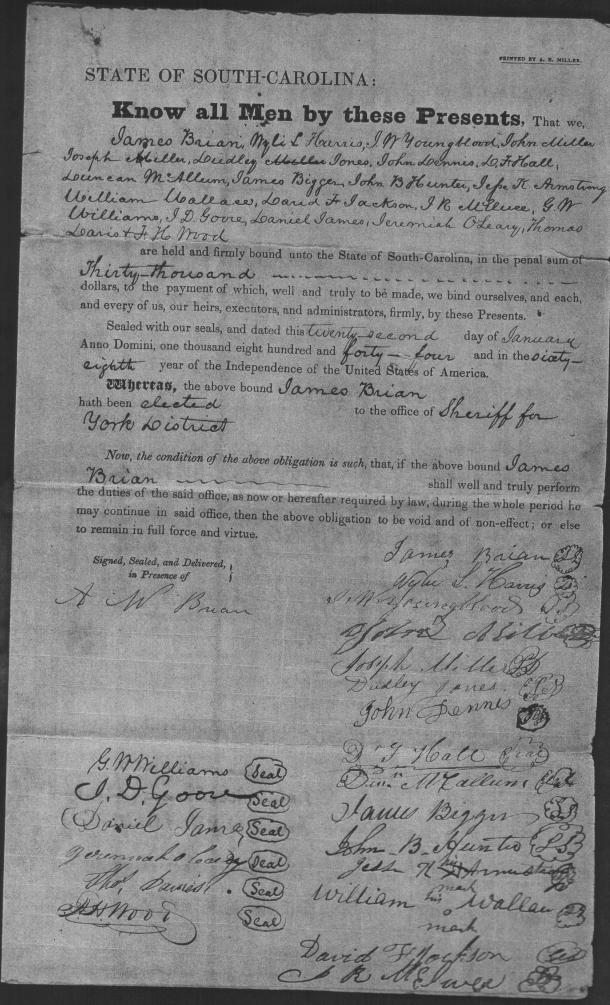 PRINTED BY A. E. MILLER.
STATE OF SOUTH-CAROLINA:
Know all Men by these Presents, That we,
James Brian, Wyli L Harris, J W Youngblood, John Miller
Joseph Miller, Dudley Miller Jones, John Dennis, D. F Hall,
Duncan McAllum, James Bigger, John B Hunter, Jesse K Armstrong
William Wallace, David F Jackson, J R McElwee, G. W
Williams, J D Goore, Daniel James, Jeremiah O'Leary, Thomas
Davis & F. H. Wood
are held and firmly bound unto the State of South-Carolina, in the penal sum of
Thirty thousand
dollars, to the payment of which, well and truly to be made, we bind ourselves, and each,
and every of us, our heirs, executors, and administrators, firmly, by these Presents.
Sealed with our seals, and dated this twenty second day of January
Anno Domini, one thousand eight hundred and forty-four and in the sixty-
eighth year of the Independence of the United States of America.
Whereas, the above bound James Brian
hath been elected to the office of Sheriff for
York District
Now, the condition of the above obligation is such, that, if the above bound James
Brian shall well and truly perform
the duties of the said office, as now or hereafter required by law, during the whole period he
may continue in said office, then the above obligation to be void and of non-effect; or else
to remain in full force and virtue.
Signed, Sealed, and Delivered,
in Presence of
A W Brian
James Brian LS
Wylie L. Harris LS
J W Youngblood LS
John Miller LS
Joseph Miller LS
Dudley Jones LS
John Dennis LS
D. F Hall Seal
Dun. McCallum Seal
James Bigger LS
John B. Hunter LS
Jesse K his Armstrong
mark
William his Wallace LS
mark
David F Jackson LS
J R McElwee LS
G. W Williams Seal
J. D. Goore Seal
Daniel James Seal
Jeremiah o Leary Seal
Tho. Davis Seal
F. H. Wood Seal